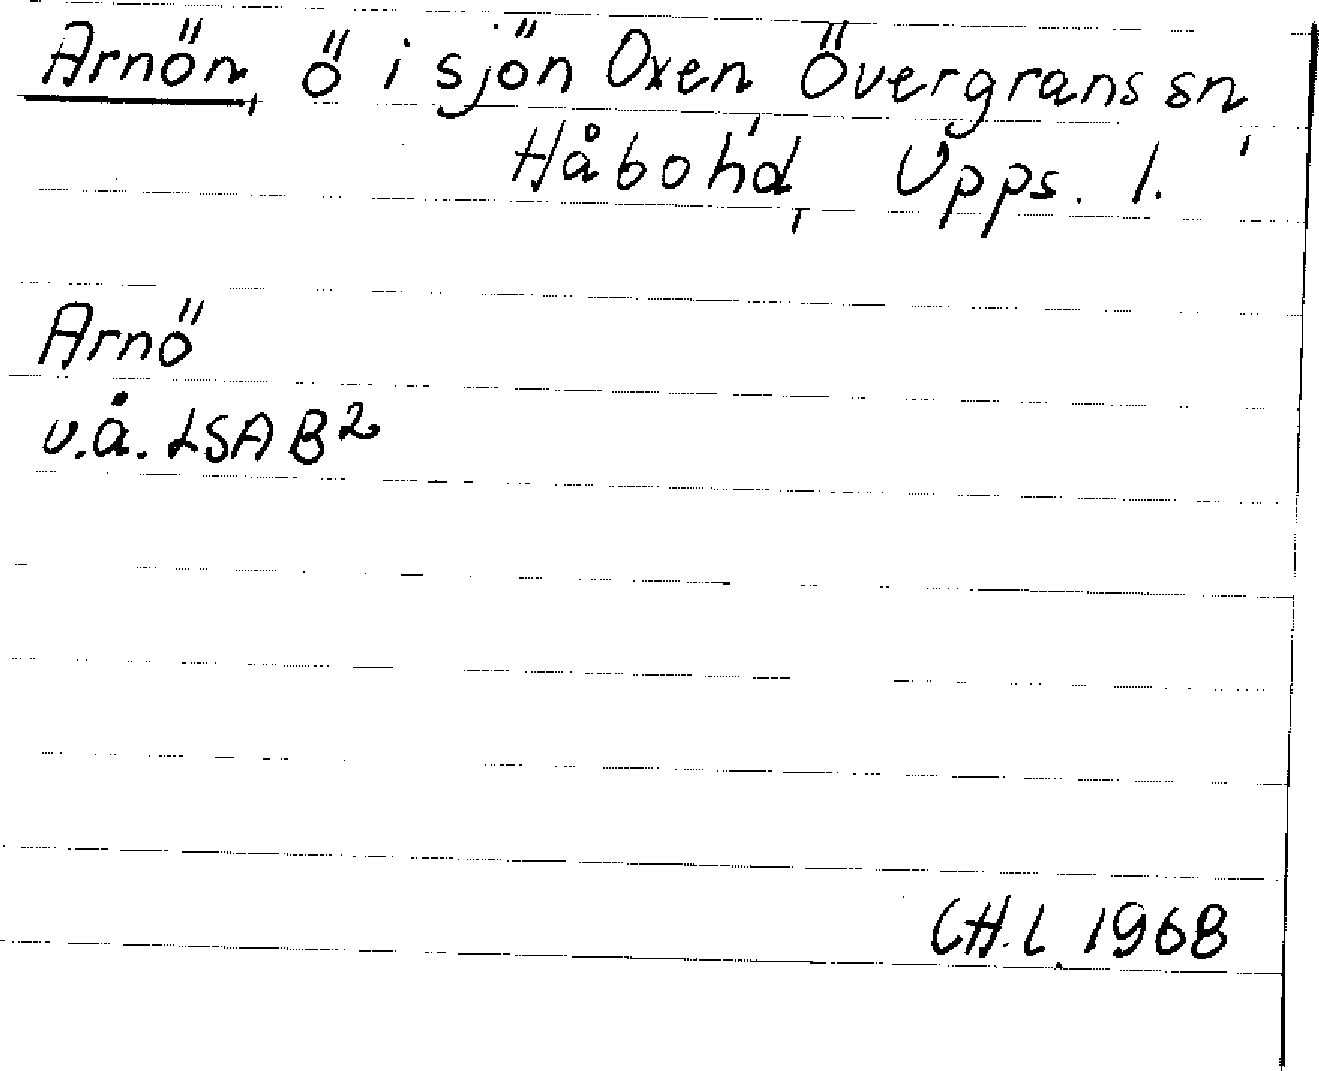 Arnön, ö i sjön Oxen, Övergrans sn,
Håbo hd, Upps. l.
Arnö
u.å. LSA B²
CH.L. 1968